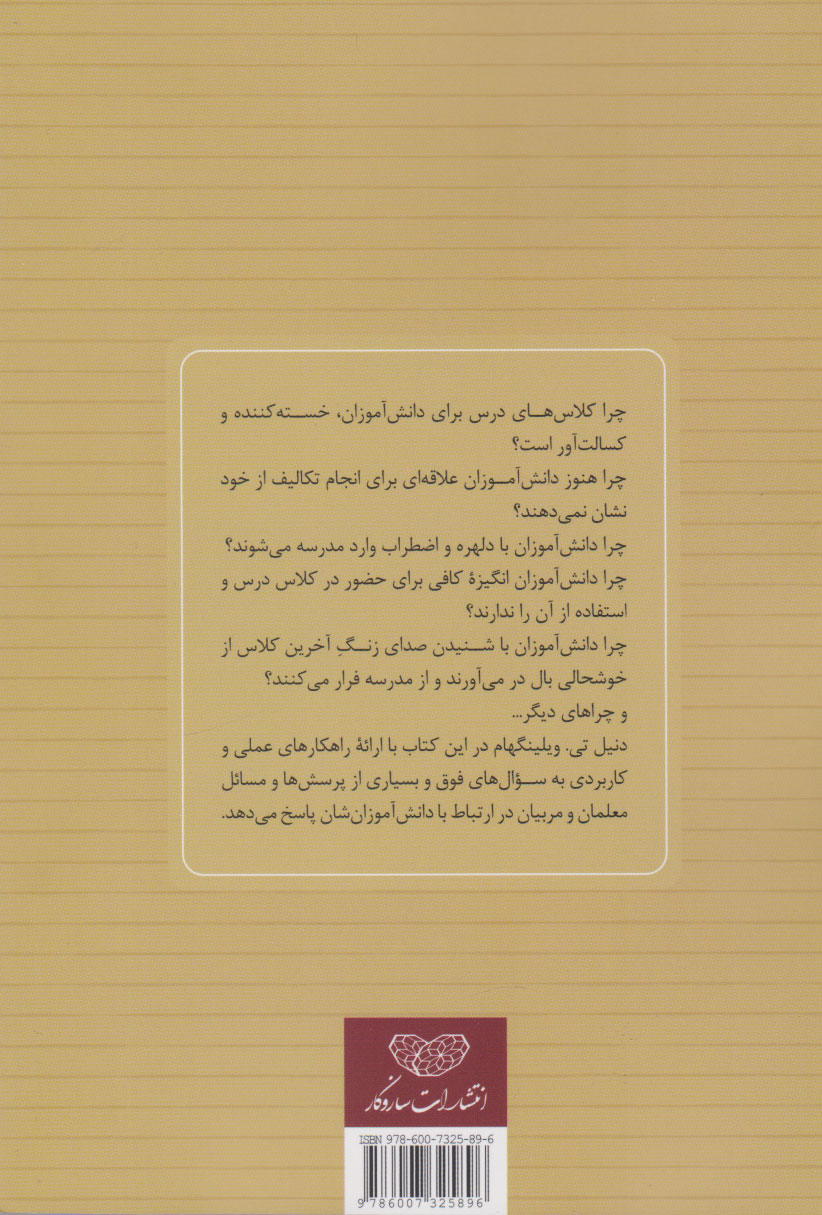 چرا کلاس‌هـــای درس برای دانش‌آموزان، خســـته‌کننده و
کسالت‌آور است؟
چرا هنوز دانش‌آمـــوزان علاقه‌ای برای انجام تکالیف از خود
نشان نمی‌دهند؟
چرا دانش‌آموزان با دلهره و اضطراب وارد مدرسه می‌شوند؟
چرا دانش‌آموزان انگیزۀ کافی برای حضور در کلاس درس و
استفاده از آن را ندارند؟
چرا دانش‌آموزان با شـــنیدن صدای زنـــگِ آخرین کلاس از
خوشحالی بال در می‌آورند و از مدرسه فرار می‌کنند؟
و چراهای دیگر...
دنیل تی. ویلینگهام در این کتاب با ارائۀ راهکارهای عملی و
کاربردی به ســـؤال‌های فوق و بسیاری از پرسش‌ها و مسائل
معلمان و مربیان در ارتباط با دانش‌آموزان‌شان پاسخ می‌دهد.
انتشارات سازوکار
ISBN 978-600-7325-89-6
9 786007 325896